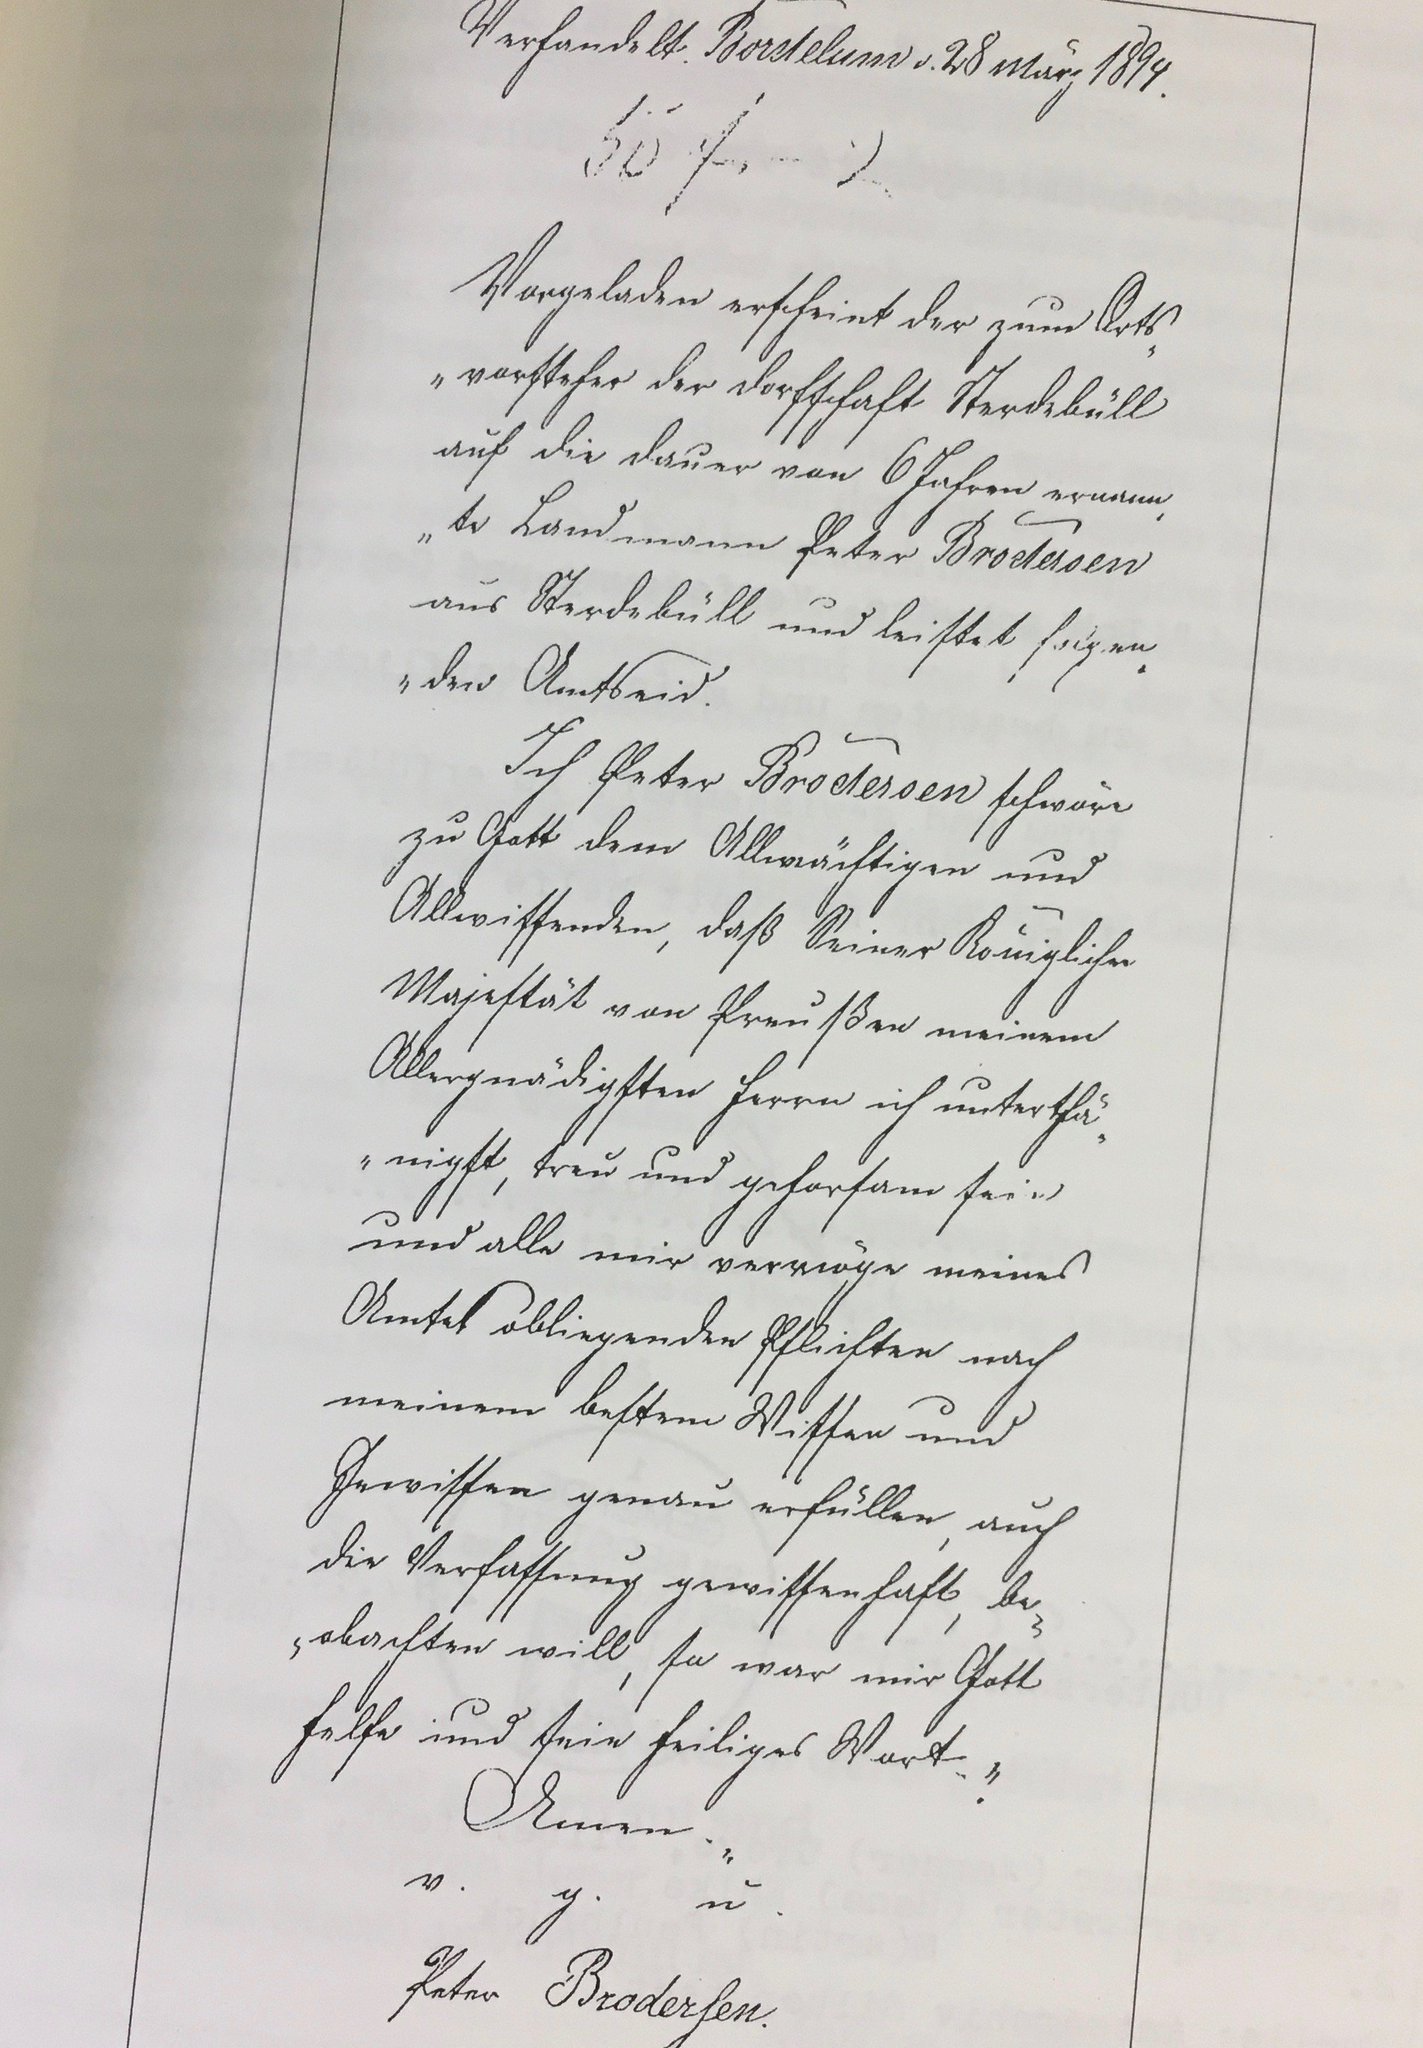 Verhandelt. Bordelum d. 28 März 1894.
Vorgeladen erscheint der zum Orts„
„vorsteher der Dorfschaft Sterdebüll
auf die Dauer von 6 Jahren ernann„
„te Landmann Peter Brodersen
aus Sterdebüll und leistet folgen„
„den Amtseid.
Ich Peter Brodersen schwöre
zu Gott dem Allmächtigen und
Allwissenden, daß Seiner Königlichen
Majestät von Preußen meinem
Allergnädigsten Herrn ich unterthä„
„nigst, treu und gehorsam sein
und alle mir vermöge meines
Amtes obliegenden Pflichten nach
meinem besten Wissen und
Gewissen genau erfüllen, auch
die Verfassung gewissenhaft, be„
„obachten will, so war mir Gott
helfe und sein heiliges Wort.„
Amen.„
v. g. u.
Peter Brodersen.